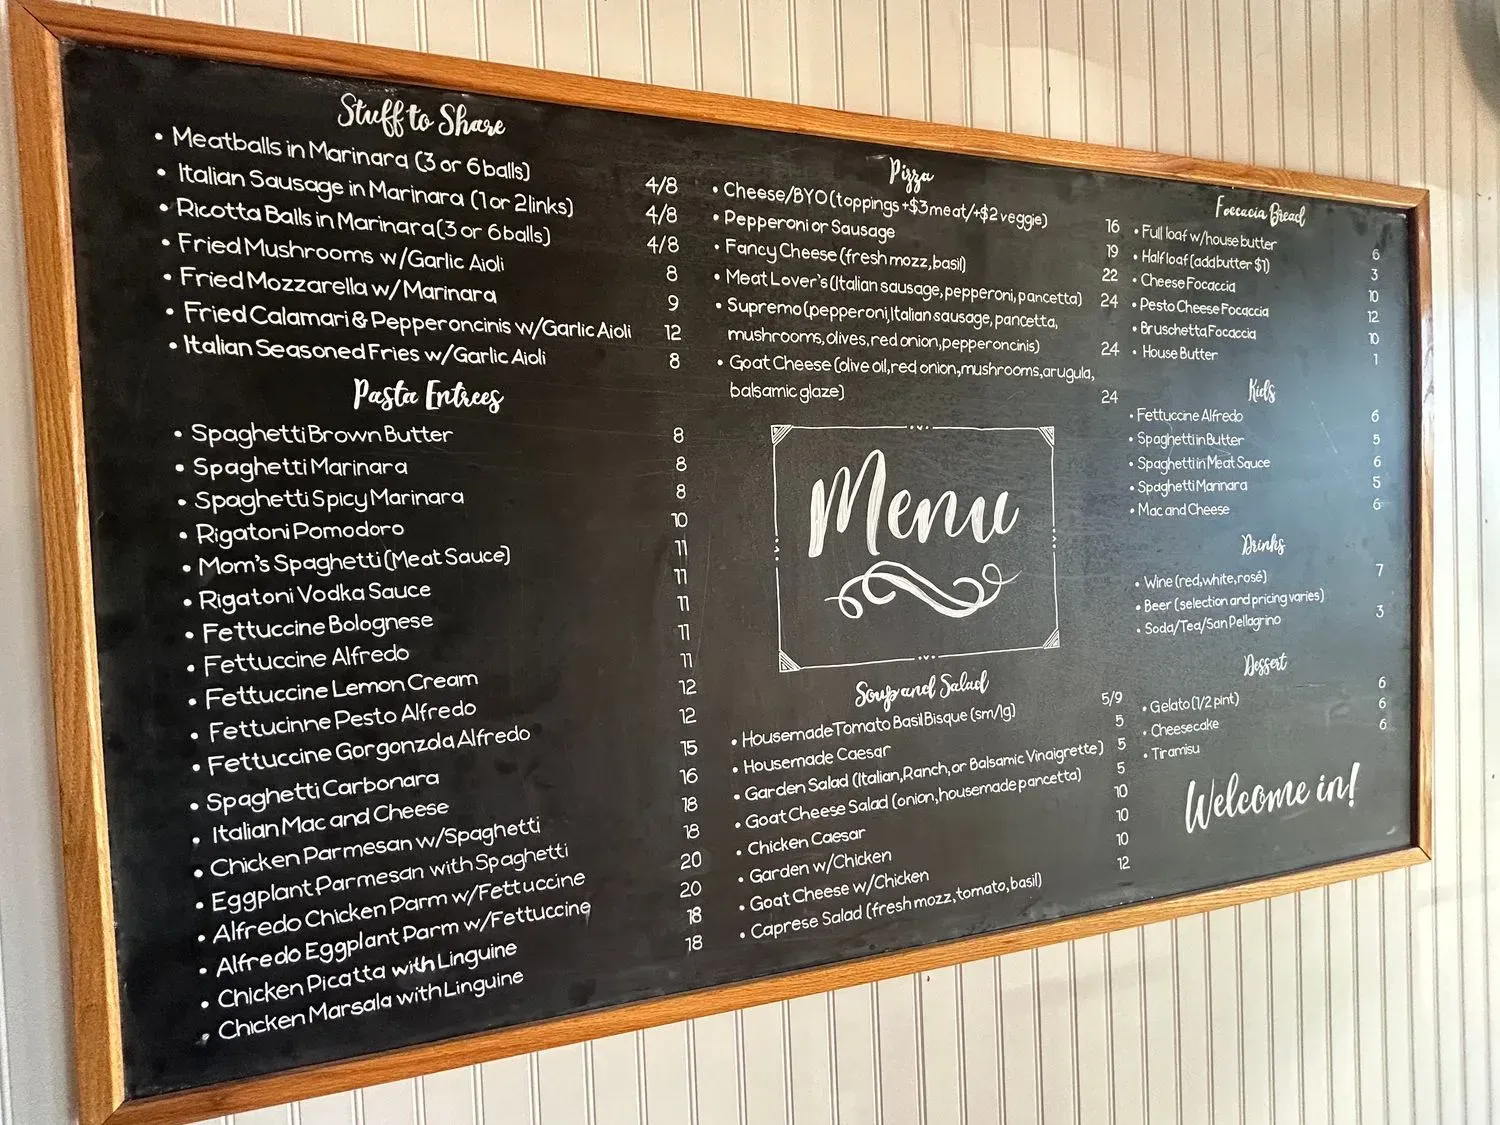 Stuff to Share
• Meatballs in Marinara (3 or 6 balls) 4/8
• Italian Sausage in Marinara (1 or 2 links) 4/8
• Ricotta Balls in Marinara (3 or 6 balls) 4/8
• Fried Mushrooms w/Garlic Aioli 8
• Fried Mozzarella w/Marinara 9
• Fried Calamari & Pepperoncinis w/Garlic Aioli 12
• Italian Seasoned Fries w/Garlic Aioli 8
Pasta Entrees
• Spaghetti Brown Butter 8
• Spaghetti Marinara 8
• Spaghetti Spicy Marinara 8
• Rigatoni Pomodoro 10
• Mom's Spaghetti (Meat Sauce) 11
• Rigatoni Vodka Sauce 11
• Fettuccine Bolognese 11
• Fettuccine Alfredo 11
• Fettuccine Lemon Cream 11
• Fettucinne Pesto Alfredo 12
• Fettuccine Gorgonzola Alfredo 12
• Spaghetti Carbonara 15
• Italian Mac and Cheese 16
• Chicken Parmesan w/Spaghetti 18
• Eggplant Parmesan with Spaghetti 18
• Alfredo Chicken Parm w/Fettuccine 20
• Alfredo Eggplant Parm w/Fettuccine 20
• Chicken Picatta with Linguine 18
• Chicken Marsala with Linguine 18
Pizza
• Cheese/BYO (toppings +$3 meat/+$2 veggie) 16
• Pepperoni or Sausage 19
• Fancy Cheese (fresh mozz, basil) 22
• Meat Lover's (Italian sausage, pepperoni, pancetta) 24
• Supremo (pepperoni, Italian sausage, pancetta,
mushrooms, olives, red onion, pepperoncinis) 24
• Goat Cheese (olive oil, red onion, mushrooms, arugula,
balsamic glaze) 24
Menu
Soup and Salad
• Housemade Tomato Basil Bisque (sm/lg) 5/9
• Housemade Caesar 5
• Garden Salad (Italian, Ranch, or Balsamic Vinaigrette) 5
• Goat Cheese Salad (onion, housemade pancetta) 5
• Chicken Caesar 10
• Garden w/Chicken 10
• Goat Cheese w/Chicken 10
• Caprese Salad (fresh mozz, tomato, basil) 12
Foccacia Bread
• Full loaf w/house butter 6
• Half loaf (add butter $1) 3
• Cheese Focaccia 10
• Pesto Cheese Focaccia 12
• Bruschetta Focaccia 10
• House Butter 1
Kids
• Fettuccine Alfredo 6
• Spaghetti in Butter 5
• Spaghetti in Meat Sauce 6
• Spaghetti Marinara 5
• Mac and Cheese 6
Drinks
• Wine (red, white, rosé) 7
• Beer (selection and pricing varies)
• Soda/Tea/San Pellagrino 3
Dessert
• Gelato (1/2 pint) 6
• Cheesecake 6
• Tiramisu 6
Welcome in!